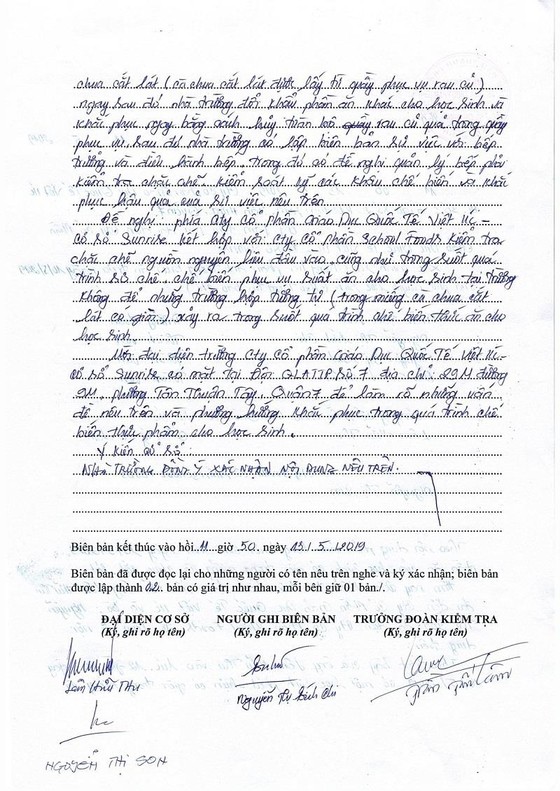 chưa cắt lát (cà chua cắt lát được lấy từ quầy phục vụ rau củ)
ngay sau đó nhà trường đổi khẩu phần ăn khác cho học sinh và
khắc phục ngay bằng cách hủy toàn bộ rau củ quả trong quầy
phục vụ. Sau đó nhà trường có lập biên bản sự việc với bếp
trưởng và điều hành bếp. Trong đó có đề nghị quản lý bếp phải
kiểm tra chặt chẽ kiểm soát kỹ các khâu chế biến và khắc
phục hậu quả của sự việc nêu trên.
Đề nghị: phía Cty Cổ phần Giáo Dục Quốc Tế Việt Úc -
Cơ Sở Sunrise kết hợp với Cty cổ phần School Foods kiểm tra
chặt chẽ nguồn nguyên liệu đầu vào cũng như trong suốt quá
trình sơ chế chế biến phục vụ suất ăn cho học sinh tại trường
không để những trường hợp tương tự (trong miếng cà chua cắt
lát có giòi) xảy ra trong suốt quá trình chế biến thức ăn cho
học sinh.
Mời đại diện trường Cty cổ phần Giáo Dục Quốc Tế Việt Úc -
cơ sở Sunrise có mặt tại Đội QLATTP Số 7 địa chỉ: 29M đường
9M phường Tân Thuận Tây, Quận 7 để làm rõ những vấn
đề nêu trên và phương hướng khắc phục trong quá trình chế
biến thực phẩm cho học sinh.
Ý kiến cơ sở:
NHÀ TRƯỜNG ĐỒNG Ý XÁC NHẬN NỘI DUNG NÊU TRÊN.
Biên bản kết thúc vào hồi 11 giờ 50 ngày 13/5/2019
Biên bản đã được đọc lại cho những người có tên nêu trên nghe và ký xác nhận; biên bản
được lập thành 02 bản có giá trị như nhau, mỗi bên giữ 01 bản./.
ĐẠI DIỆN CƠ SỞ NGƯỜI GHI BIÊN BẢN TRƯỞNG ĐOÀN KIỂM TRA
(Ký, ghi rõ họ tên) (Ký, ghi rõ họ tên) (Ký, ghi rõ họ tên)
Lâm Hữu Thu Nguyễn Thị Bích Chi
NGUYỄN THỊ SON